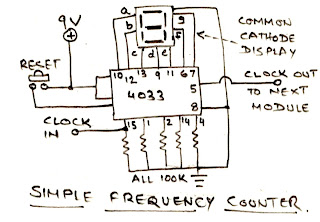 9V
a
b
c
d
e
g
f
COMMON
CATHODE
DISPLAY
RESET
10 12 13 9 11 6 7
4033
5
8
CLOCK OUT
TO NEXT
MODULE
CLOCK
IN
15 1 2 14 4
ALL 100K
SIMPLE FREQUENCY COUNTER.